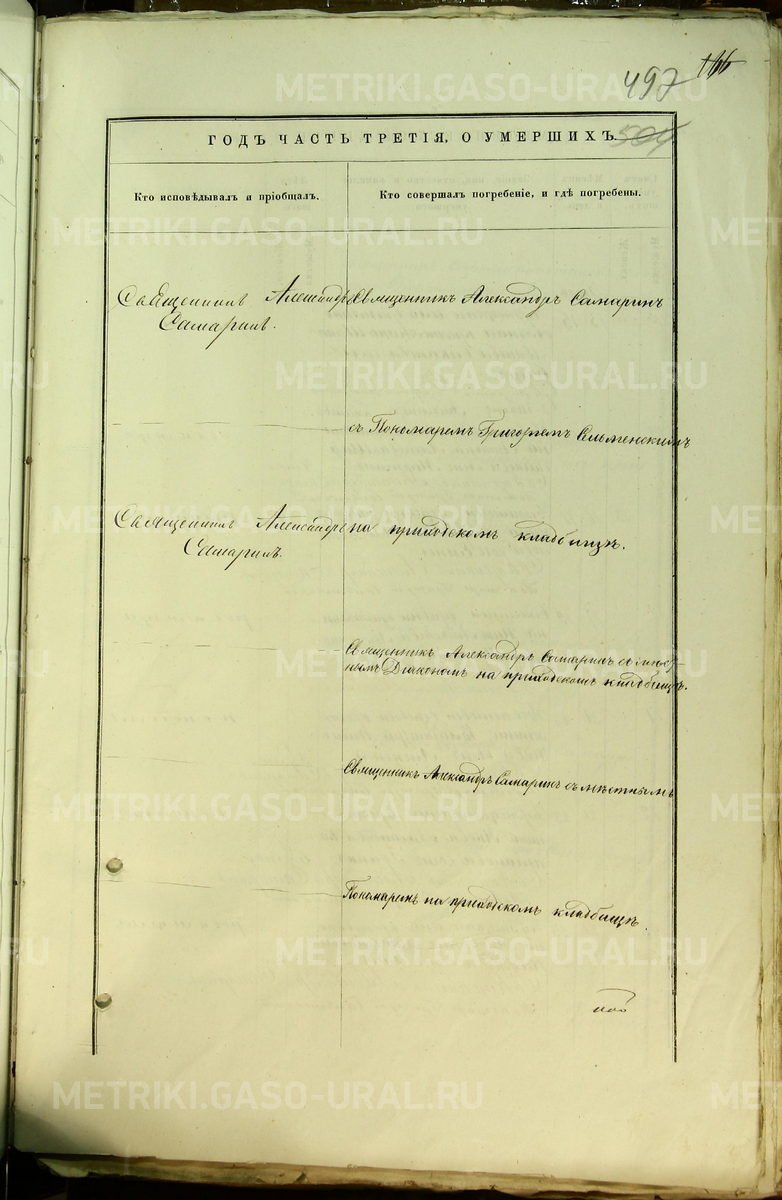 497 166
ГОДЪ ЧАСТЬ ТРЕТІЯ, О УМЕРШИХЪ. 504
Кто исповѣдывалъ и пріобщалъ.
Кто совершалъ погребеніе, и гдѣ погребены.
Священникъ Александръ
Самаринъ.
Священникъ Александръ Самаринъ
съ Пономаремъ Григоріемъ
Священникъ Александръ
Самаринъ.
на приходскомъ кладбищѣ.
Священникъ Александръ Самаринъ съ мѣст-
нымъ Діакономъ на приходскомъ кладбищѣ.
Священникъ Александръ Самаринъ съ мѣстнымъ
Пономаремъ на приходскомъ кладбищѣ.
METRIKI.GASO-URAL.RU